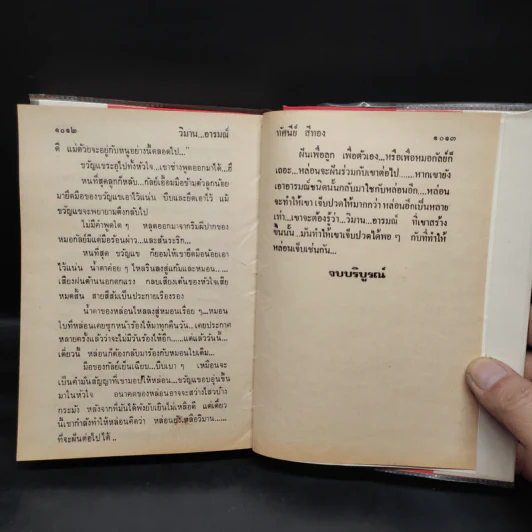 ๑๐๑๒
วิมาน...อารมณ์
ดี แม้ด้วยจะอยู่กับหนูอย่างนี้ตลอดไป..."
ขวัญแขระอุไปทั้งหัวใจ...เขาช่างพูดออกมาได้..ฮึ
หนที่สุดลูกก็หลับ...กัลย์เอื้อมมือข้ามตัวลูกน้อย
มายึดมือของขวัญแขเอาไว้แน่น บีบและยึดเอาไว้ แม้
ขวัญแขจะพยายามดึงกลับไป
ไม่มีคำพูดใด ๆ หลุดออกมาจากริมฝีปากของ
หมอกัลย์มีแต่มือร้อนผ่าว...และสั่นระริก...
หนที่สุด ขวัญแข ก็ยอมให้เขายึดมือน้อยเอา
ไว้แน่น น้ำตาค่อย ๆ ไหลรินลงสู่แก้มและหมอน.....
เสียงฝนด้านนอกตกแรง กลบเสียงเต้นของหัวใจเสีย
หมดสิ้น สายสีส้มเป็นประกายเรืองรอง
น้ำตาของหล่อนไหลลงสู่หมอนเรื่อย ๆ...หมอน
ใบที่หล่อนเคยซุกหน้าร้องไห้มาทุกคืนวัน...เคยประกาศ
หลายครั้งแล้วว่าจะไม่มีวันร้องไห้อีก......แต่แล้ววันนี้...
เดี๋ยวนี้ หล่อนก็ต้องกลับมาร้องกับหมอนใบเดิม...
มือของกัลย์เย็นเฉียบ...บีบเบา ๆ เหมือนจะ
เป็นคำมั่นสัญญาที่เขามอบให้หล่อน...ขวัญแขอบอุ่นขึ้น
มาในหัวใจ อนาคตของหล่อนอาจจะสว่างไสวบ้าง
กระมัง หลังจากที่มันได้พังยับเยินไม่เหลือดี แต่เดี๋ยว
นี้เขากำลังทำให้หล่อนคิดว่า หล่อนยังเหลือวิมาน......
ที่จะฝันต่อไปได้..
ทัศนีย์ สีทอง
๑๐๑๓
ฝันเพื่อลูก เพื่อตัวเอง...หรือเพื่อหมอกัลย์ก็
เถอะ...หล่อนจะฝันร่วมกับเขาต่อไป......หากเขายัง
เอาอารมณ์ชนิดนั้นกลับมาใช้กับหล่อนอีก....หล่อน
จะทำให้เขา เจ็บปวดให้มากกว่า หล่อนอีกเป็นหลาย
เท่า...เขาจะต้องรู้ว่า...วิมาน...อารมณ์ ที่เขาสร้าง
ขึ้นนั้น..มันทำให้เขาเจ็บปวดได้พอ ๆ กับที่ทำให้
หล่อนเจ็บเช่นกัน...
จบบริบูรณ์